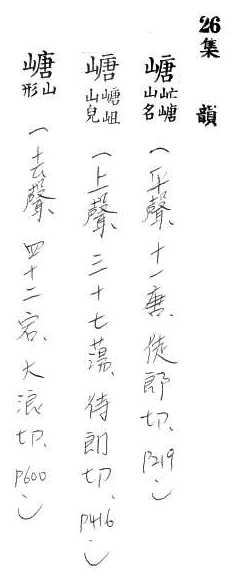 26 集韻
嵣 㟐嵣山名（平聲、十一唐、徒郎切、P219）
嵣 嵣㟐山皃（上聲、三十七蕩、待朗切、P416）
嵣 山形（去聲、四十二宕、大浪切、P600）